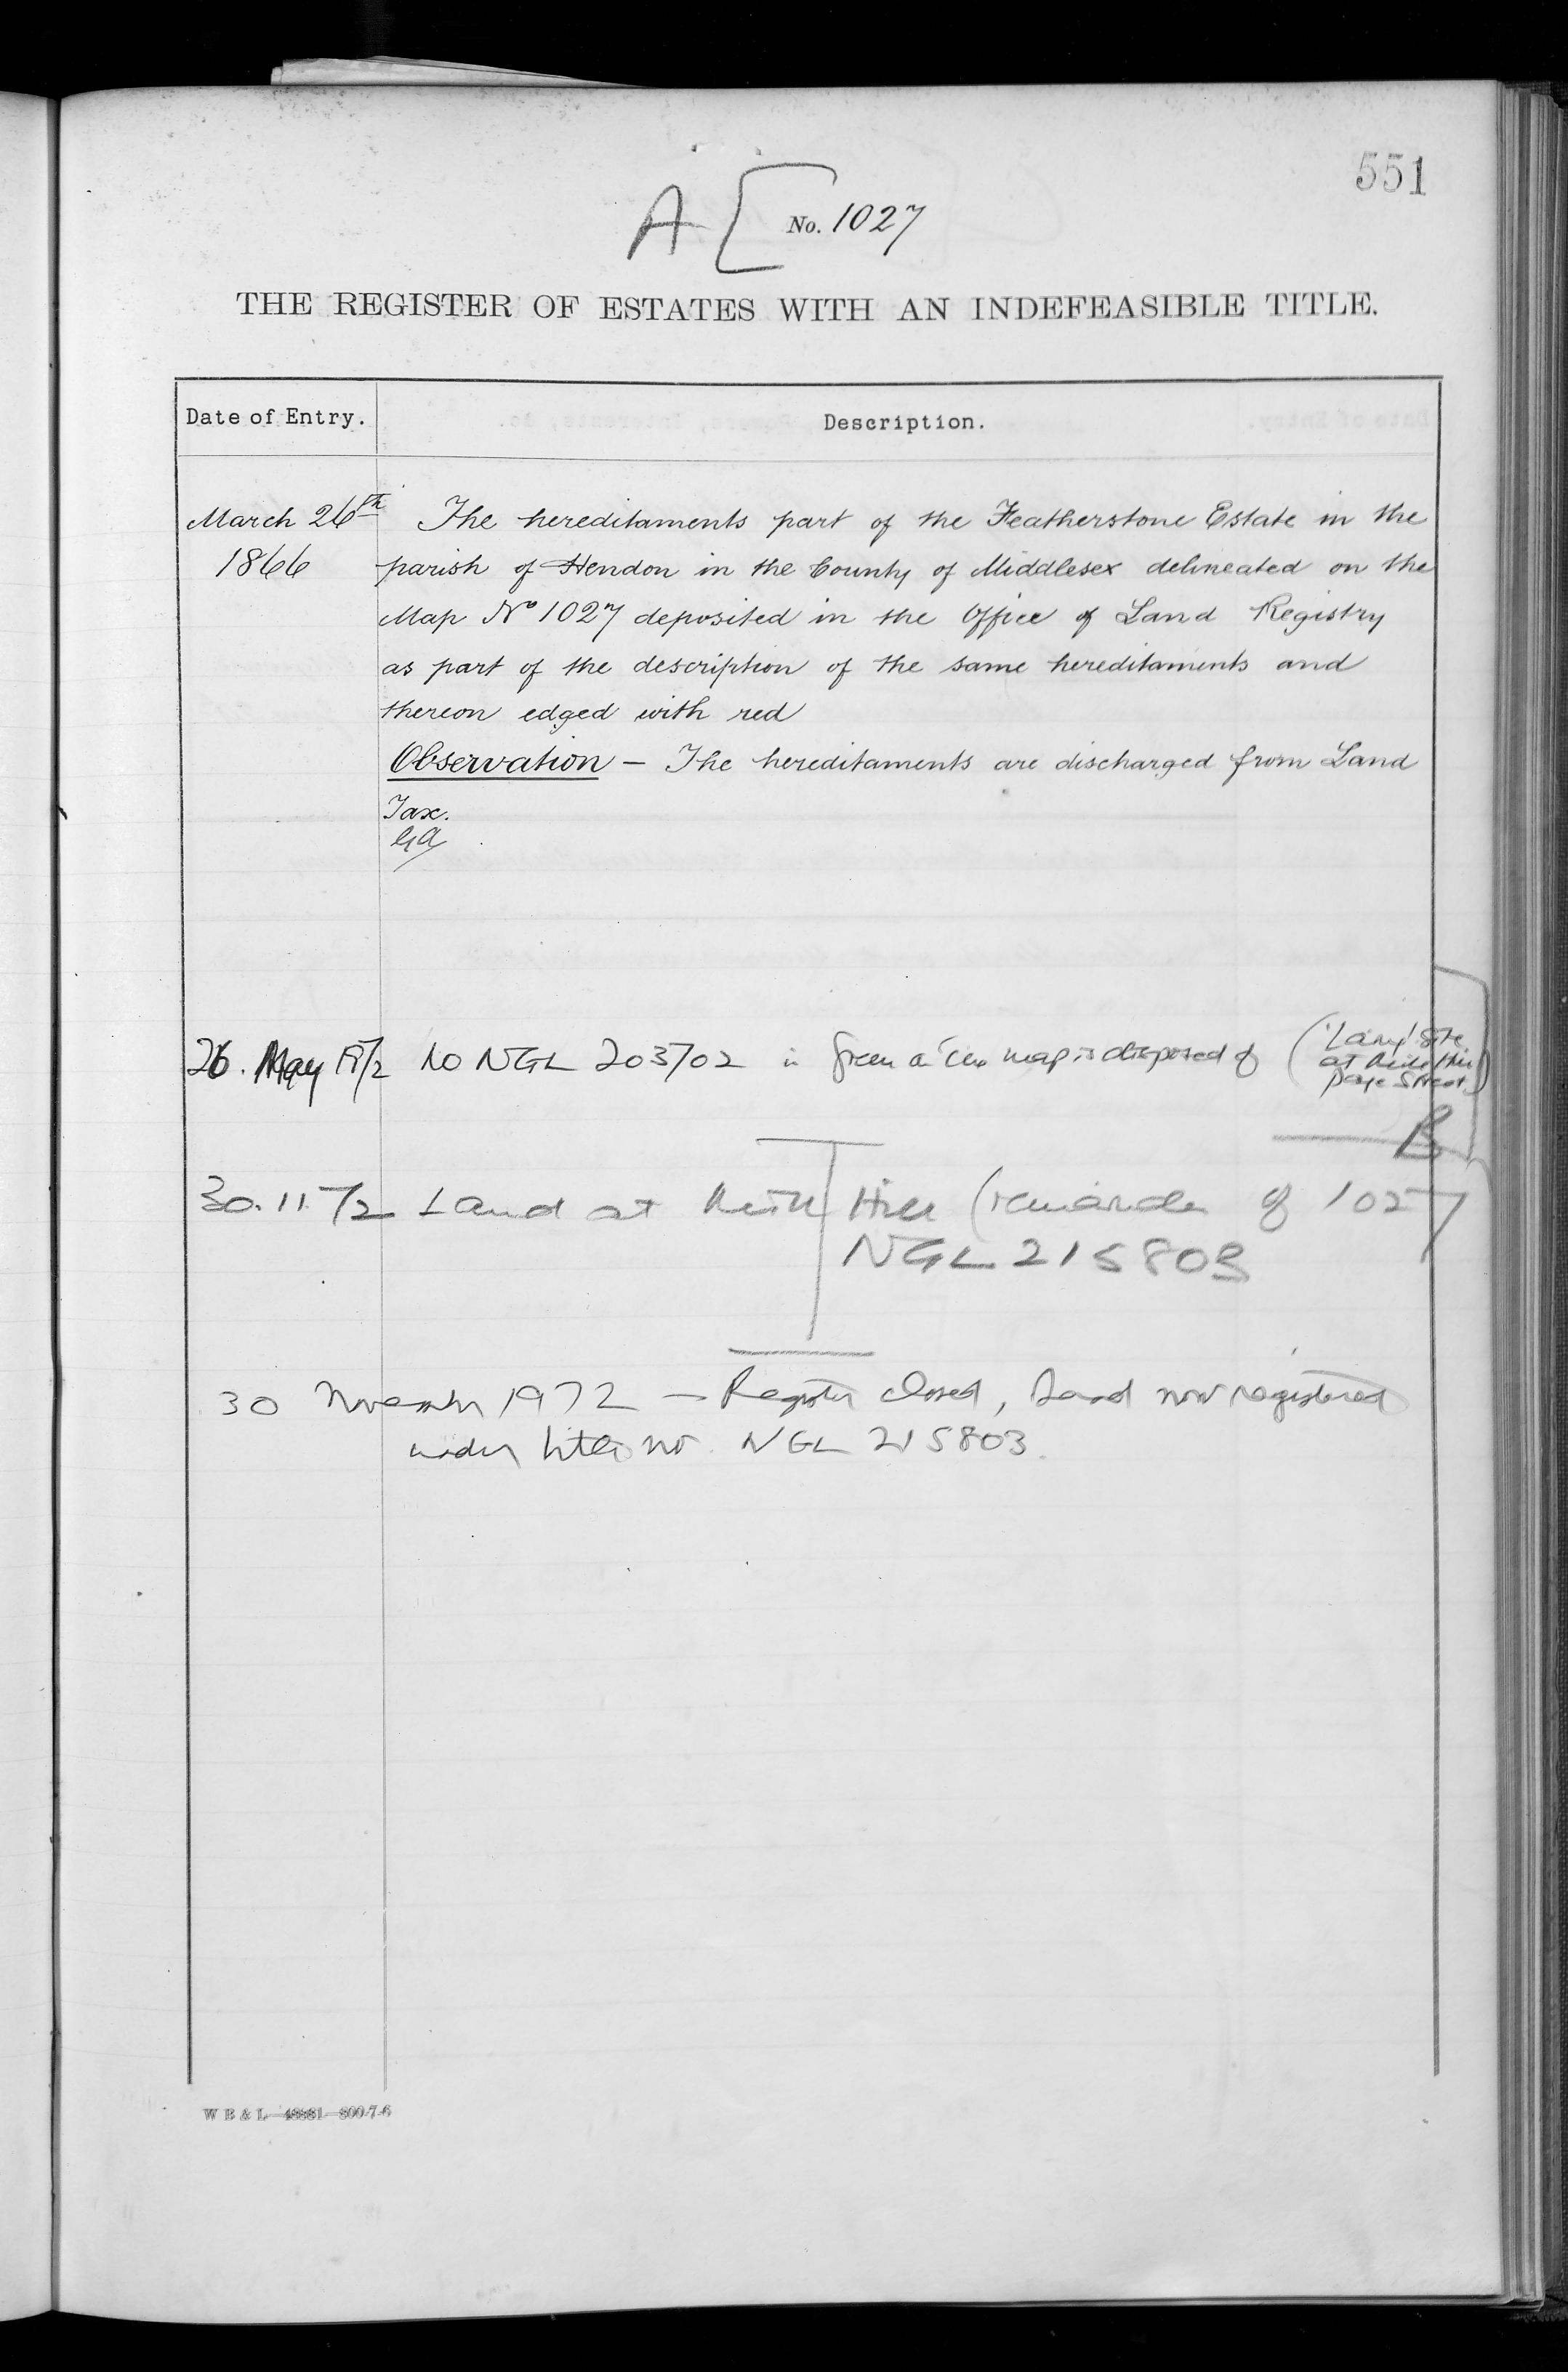 551
A [ No. 1027
THE REGISTER OF ESTATES WITH AN INDEFEASIBLE TITLE.
Date of Entry. Description.
March 26th 1866 The hereditaments part of the Featherstone Estate in the
parish of Hendon in the County of Middlesex delineated on the
Map No 1027 deposited in the Office of Land Registry
as part of the description of the same hereditaments and
thereon edged with red
Observation – The hereditaments are discharged from Land
Tax.
GA
26. May 1972 NO NGL 203702 in green on map is disposed of ( site
at Mill Hill
Page Street)
B
30.11.72 Land at Mill Hill (remainder of 1027
NGL 215803
30 November 1972 – Register closed, Land now registered
under title no. NGL 215803.
W B & L—48881—800-7-6